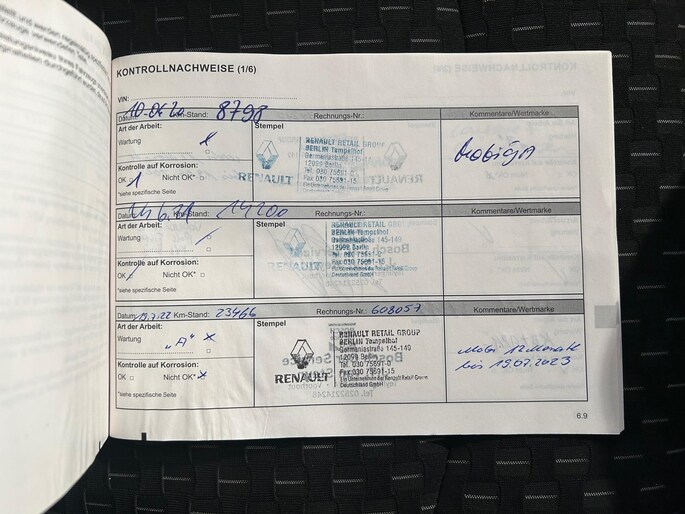 KONTROLLNACHWEISE (1/6)
VIN:
Datum: 10.06.20 Km-Stand: 8798 Rechnungs-Nr.: Kommentare/Wertmarke
Art der Arbeit: Stempel
Wartung x
Kontrolle auf Korrosion:
OK Nicht OK* □
*siehe spezifische Seite
RENAULT
RENAULT RETAIL GROUP
BERLIN Tempelhof
Germaniastraße 145-149
12099 Berlin
Tel. 030 75691-0
Fax 030 75691-15
Datum: Km-Stand: 14200 Rechnungs-Nr.: Kommentare/Wertmarke
Art der Arbeit: Stempel
Wartung
Kontrolle auf Korrosion:
OK Nicht OK* □
*siehe spezifische Seite
RENAULT
RENAULT RETAIL GROUP
BERLIN Tempelhof
Germaniastraße 145-149
12099 Berlin
Tel. 030 75691-0
Fax 030 75691-15
Ein Unternehmen der Renault Retail Group
Deutschland GmbH
Datum: 19.7.22 Km-Stand: 23466 Rechnungs-Nr.: 608057 Kommentare/Wertmarke
Art der Arbeit: Stempel
Wartung „A" x
Kontrolle auf Korrosion:
OK □ Nicht OK* x
*siehe spezifische Seite
RENAULT
RENAULT RETAIL GROUP
BERLIN Tempelhof
Germaniastraße 145-149
12099 Berlin
Tel. 030 75691-0
Fax 030 75691-15
Ein Unternehmen der Renault Retail Group
Deutschland GmbH
Mobi 12 Monate
bis 19.07.2023
6.9